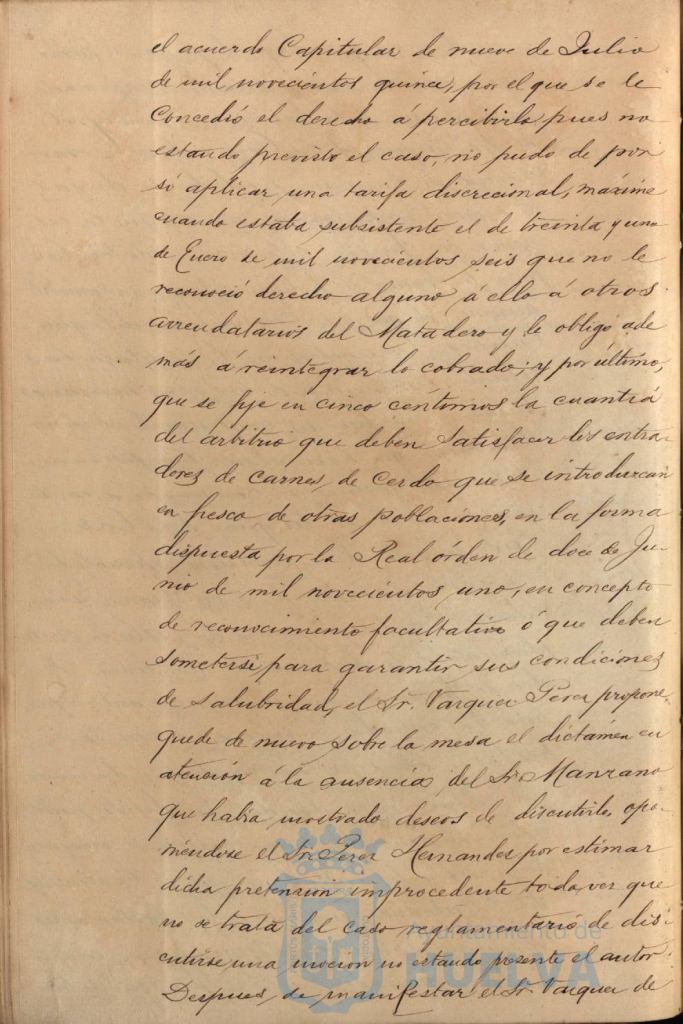 el acuerdo Capitular de nueve de Julio
de mil novecientos quince, por el que se le
Concedió el derecho á percibirlo pues no
estando previsto el caso, no pudo de por
sí aplicar una tarifa discrecional, máxime
cuando estaba subsistente el de treinta y uno
de Enero de mil novecientos seis que no le
reconoció derecho alguno á ello á otros
arrendatarios del Matadero y le obligó ade
más á reintegrar lo cobrado; y por último,
que se fije en cinco céntimos la cuantía
del arbitrio que deben satisfacer los entra-
dores de carnes de Cerdo que se introduzcan
en fresco de otras poblaciones, en la forma
dispuesta por la Real órden de doce de Ju-
nio de mil novecientos uno, en concepto
de reconocimiento facultativo ó que deben
someterse para garantir sus condiciones
de salubridad, el Sr. Vazquez Perez propone
quede de nuevo sobre la mesa el dictámen en
atención á la ausencia del Sr. Manzano
que había mostrado deseos de discutirlo, opo-
niéndose el Sr. Perez Hernandez por estimar
dicha pretensión improcedente toda vez que
no se trata del caso reglamentario de dis-
cutirse una moción no estando presente el autor.
Despues de manifestar el Sr. Vazquez de
Ayuntamiento de
HUELVA